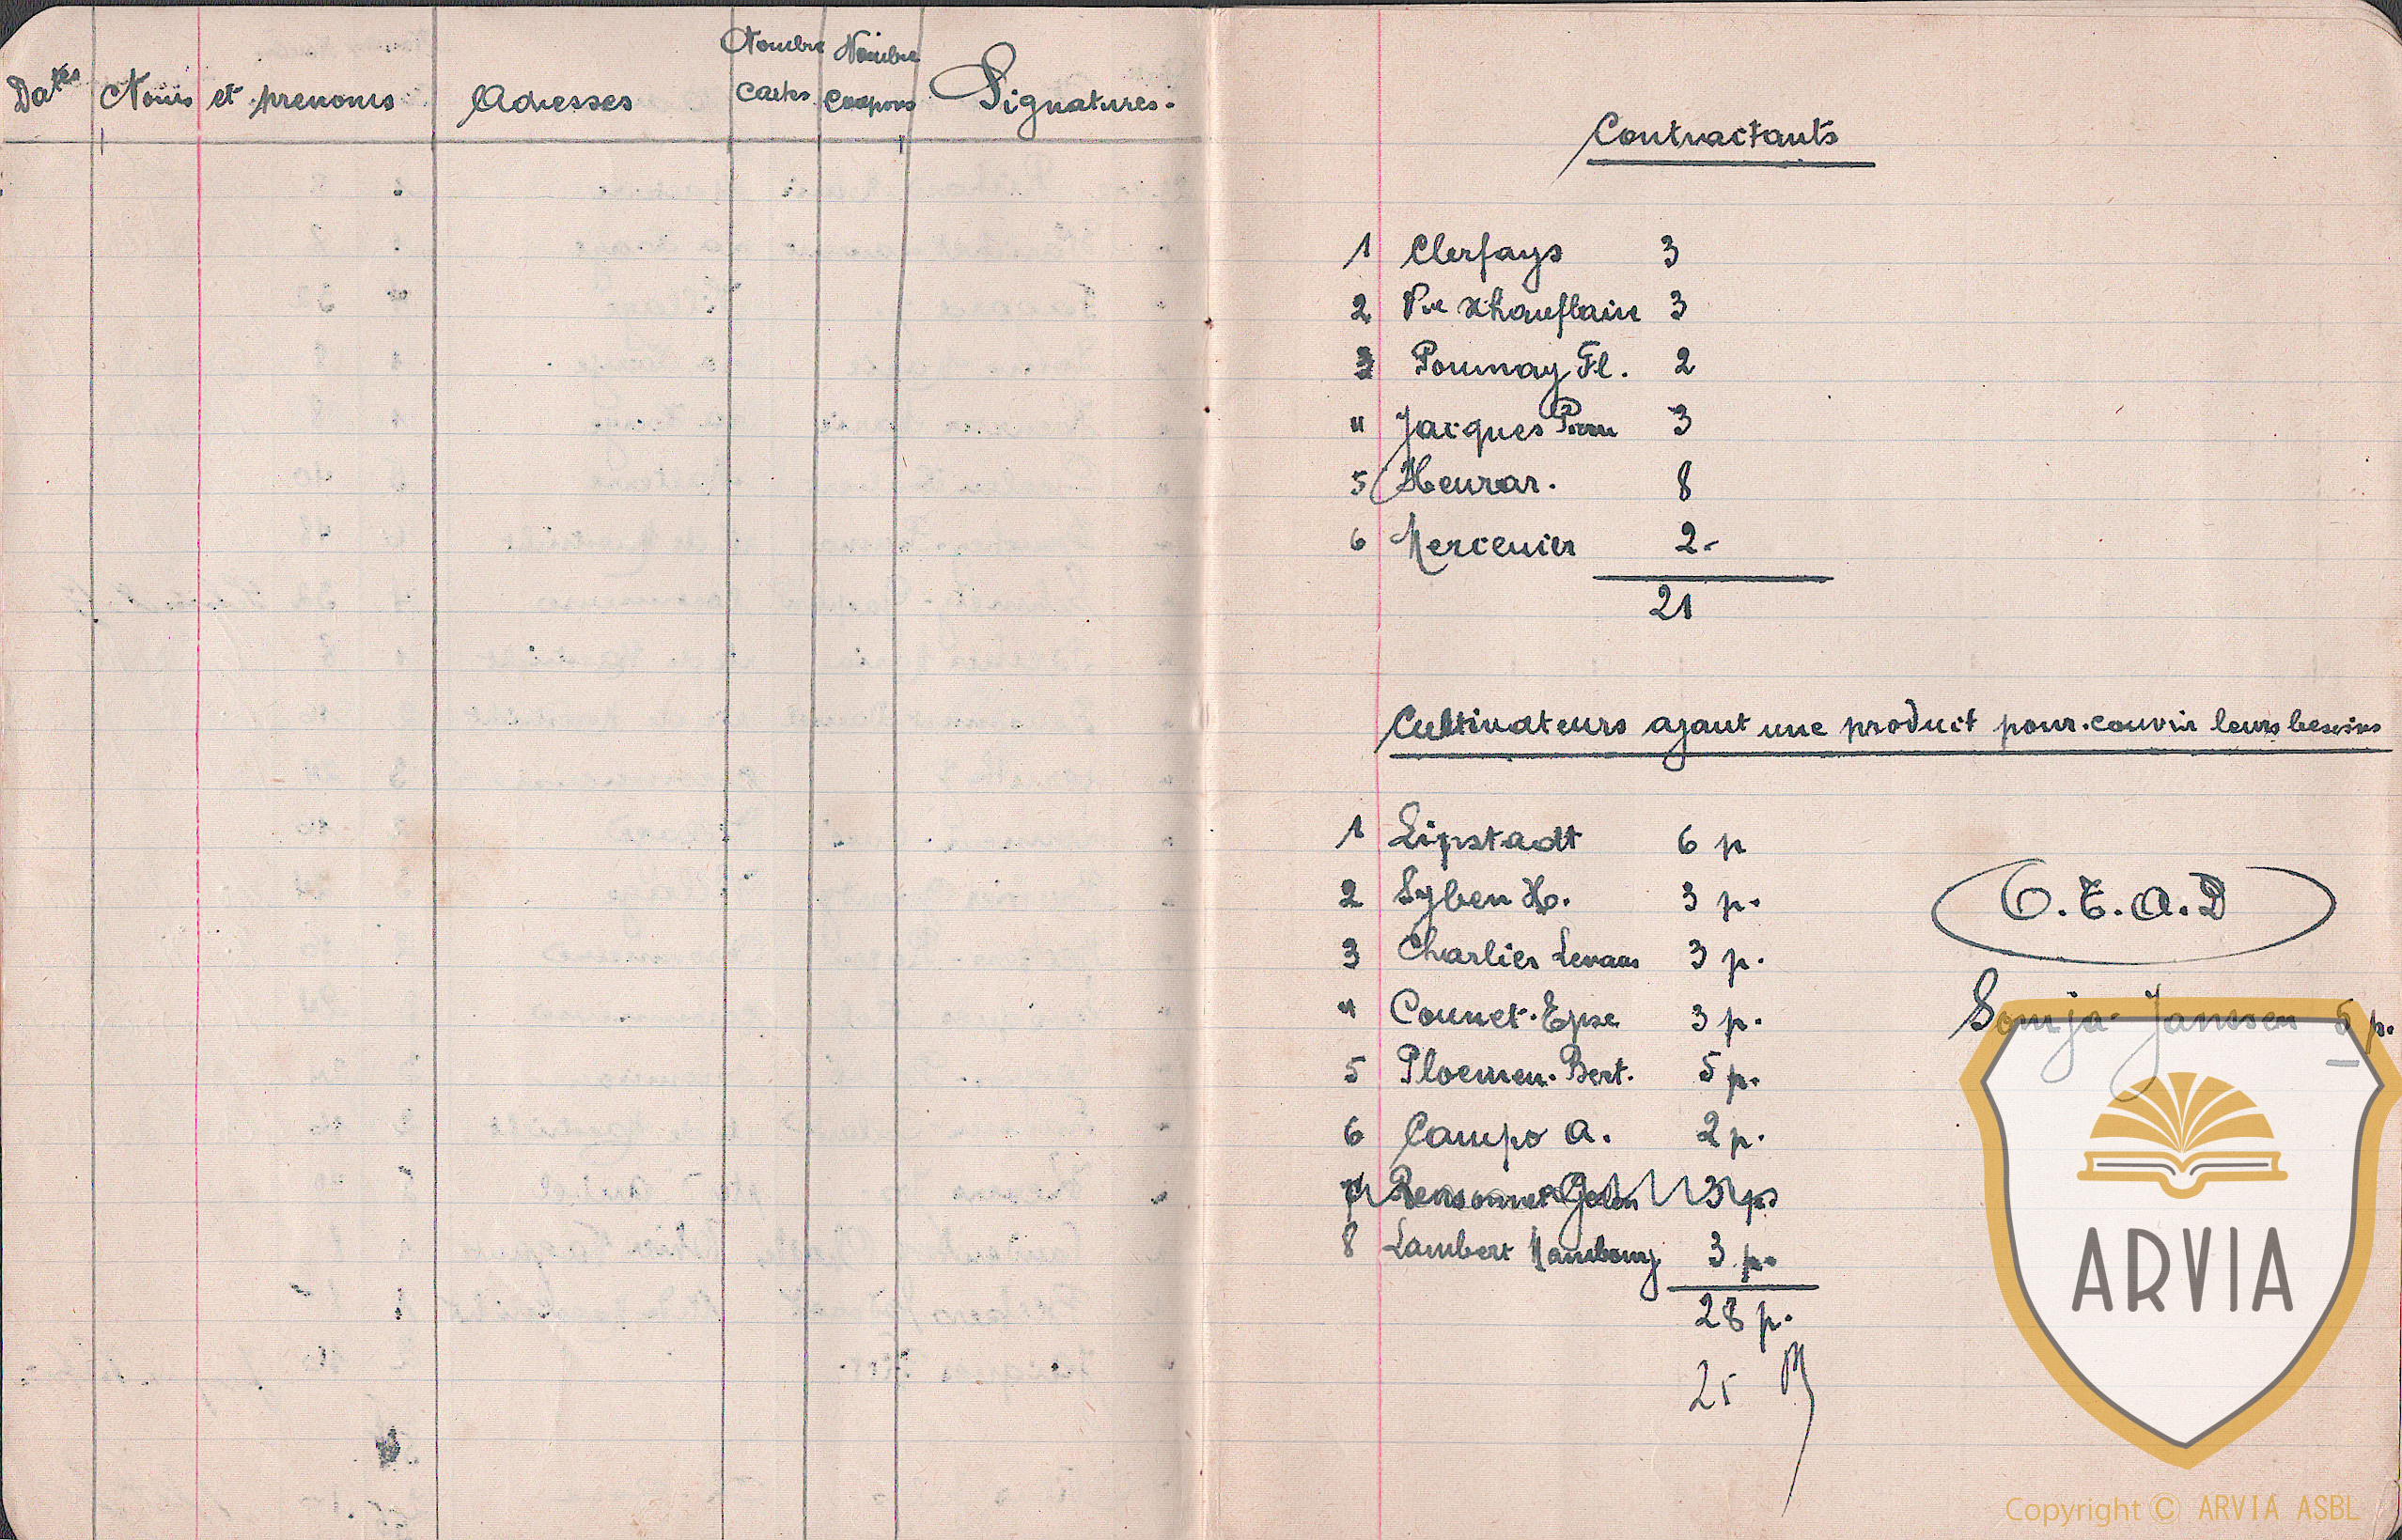 Dates Noms et prenoms Adresses Nombre Cartes Nombre Coupons Signatures.
Contractants
1 Clerfays 3
2 Vve Xhauflair 3
3 Pounnay Fl. 2
" Jacques Pierre 3
5 Heurar. 8
6 Mercenier 2-
21
Cultivateurs ayant une product pour couvrir leurs besoins
1 Lipstadt 6 p
2 Syben H. 3 p.
3 Charlier Levaux 3 p.
" Counet-Epse 3 p.
5 Ploemen. Bert. 5 p.
6 Campo A. 2 p.
7 Pensonnet 3 ps
8 Lambert Hambourg 3 p.
28 p.
25
O.T.A.D
Sonja Janssen 5 p.
ARVIA
Copyright © ARVIA ASBL